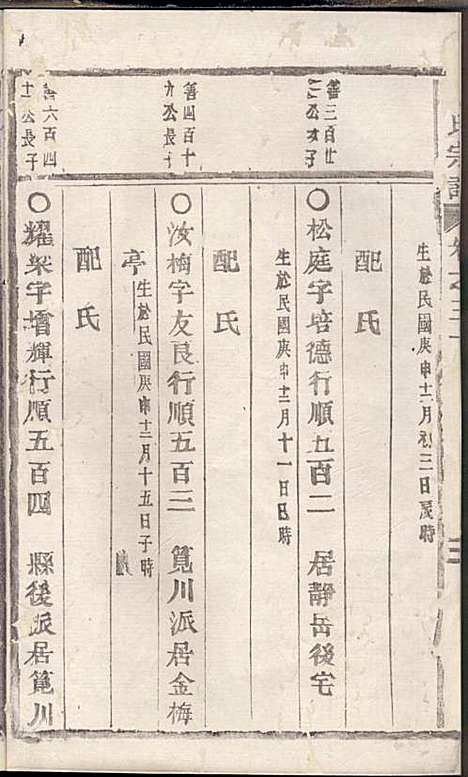 氏宗譜 卷之三十
生於民國庚申十二月初三日辰時
配氏
善三百廿
二公次子
○松庭字培德行順五百二 居靜岳後宅
生於民國庚申十二月十一日巳時
配氏
善四百十
九公長子
○汝梅字友良行順五百三 筧川派居金梅
亭 生於民國庚申十二月十五日子時
配氏
善六百四
十一公長子
○耀榮字增輝行順五百四 縣後派居筧川